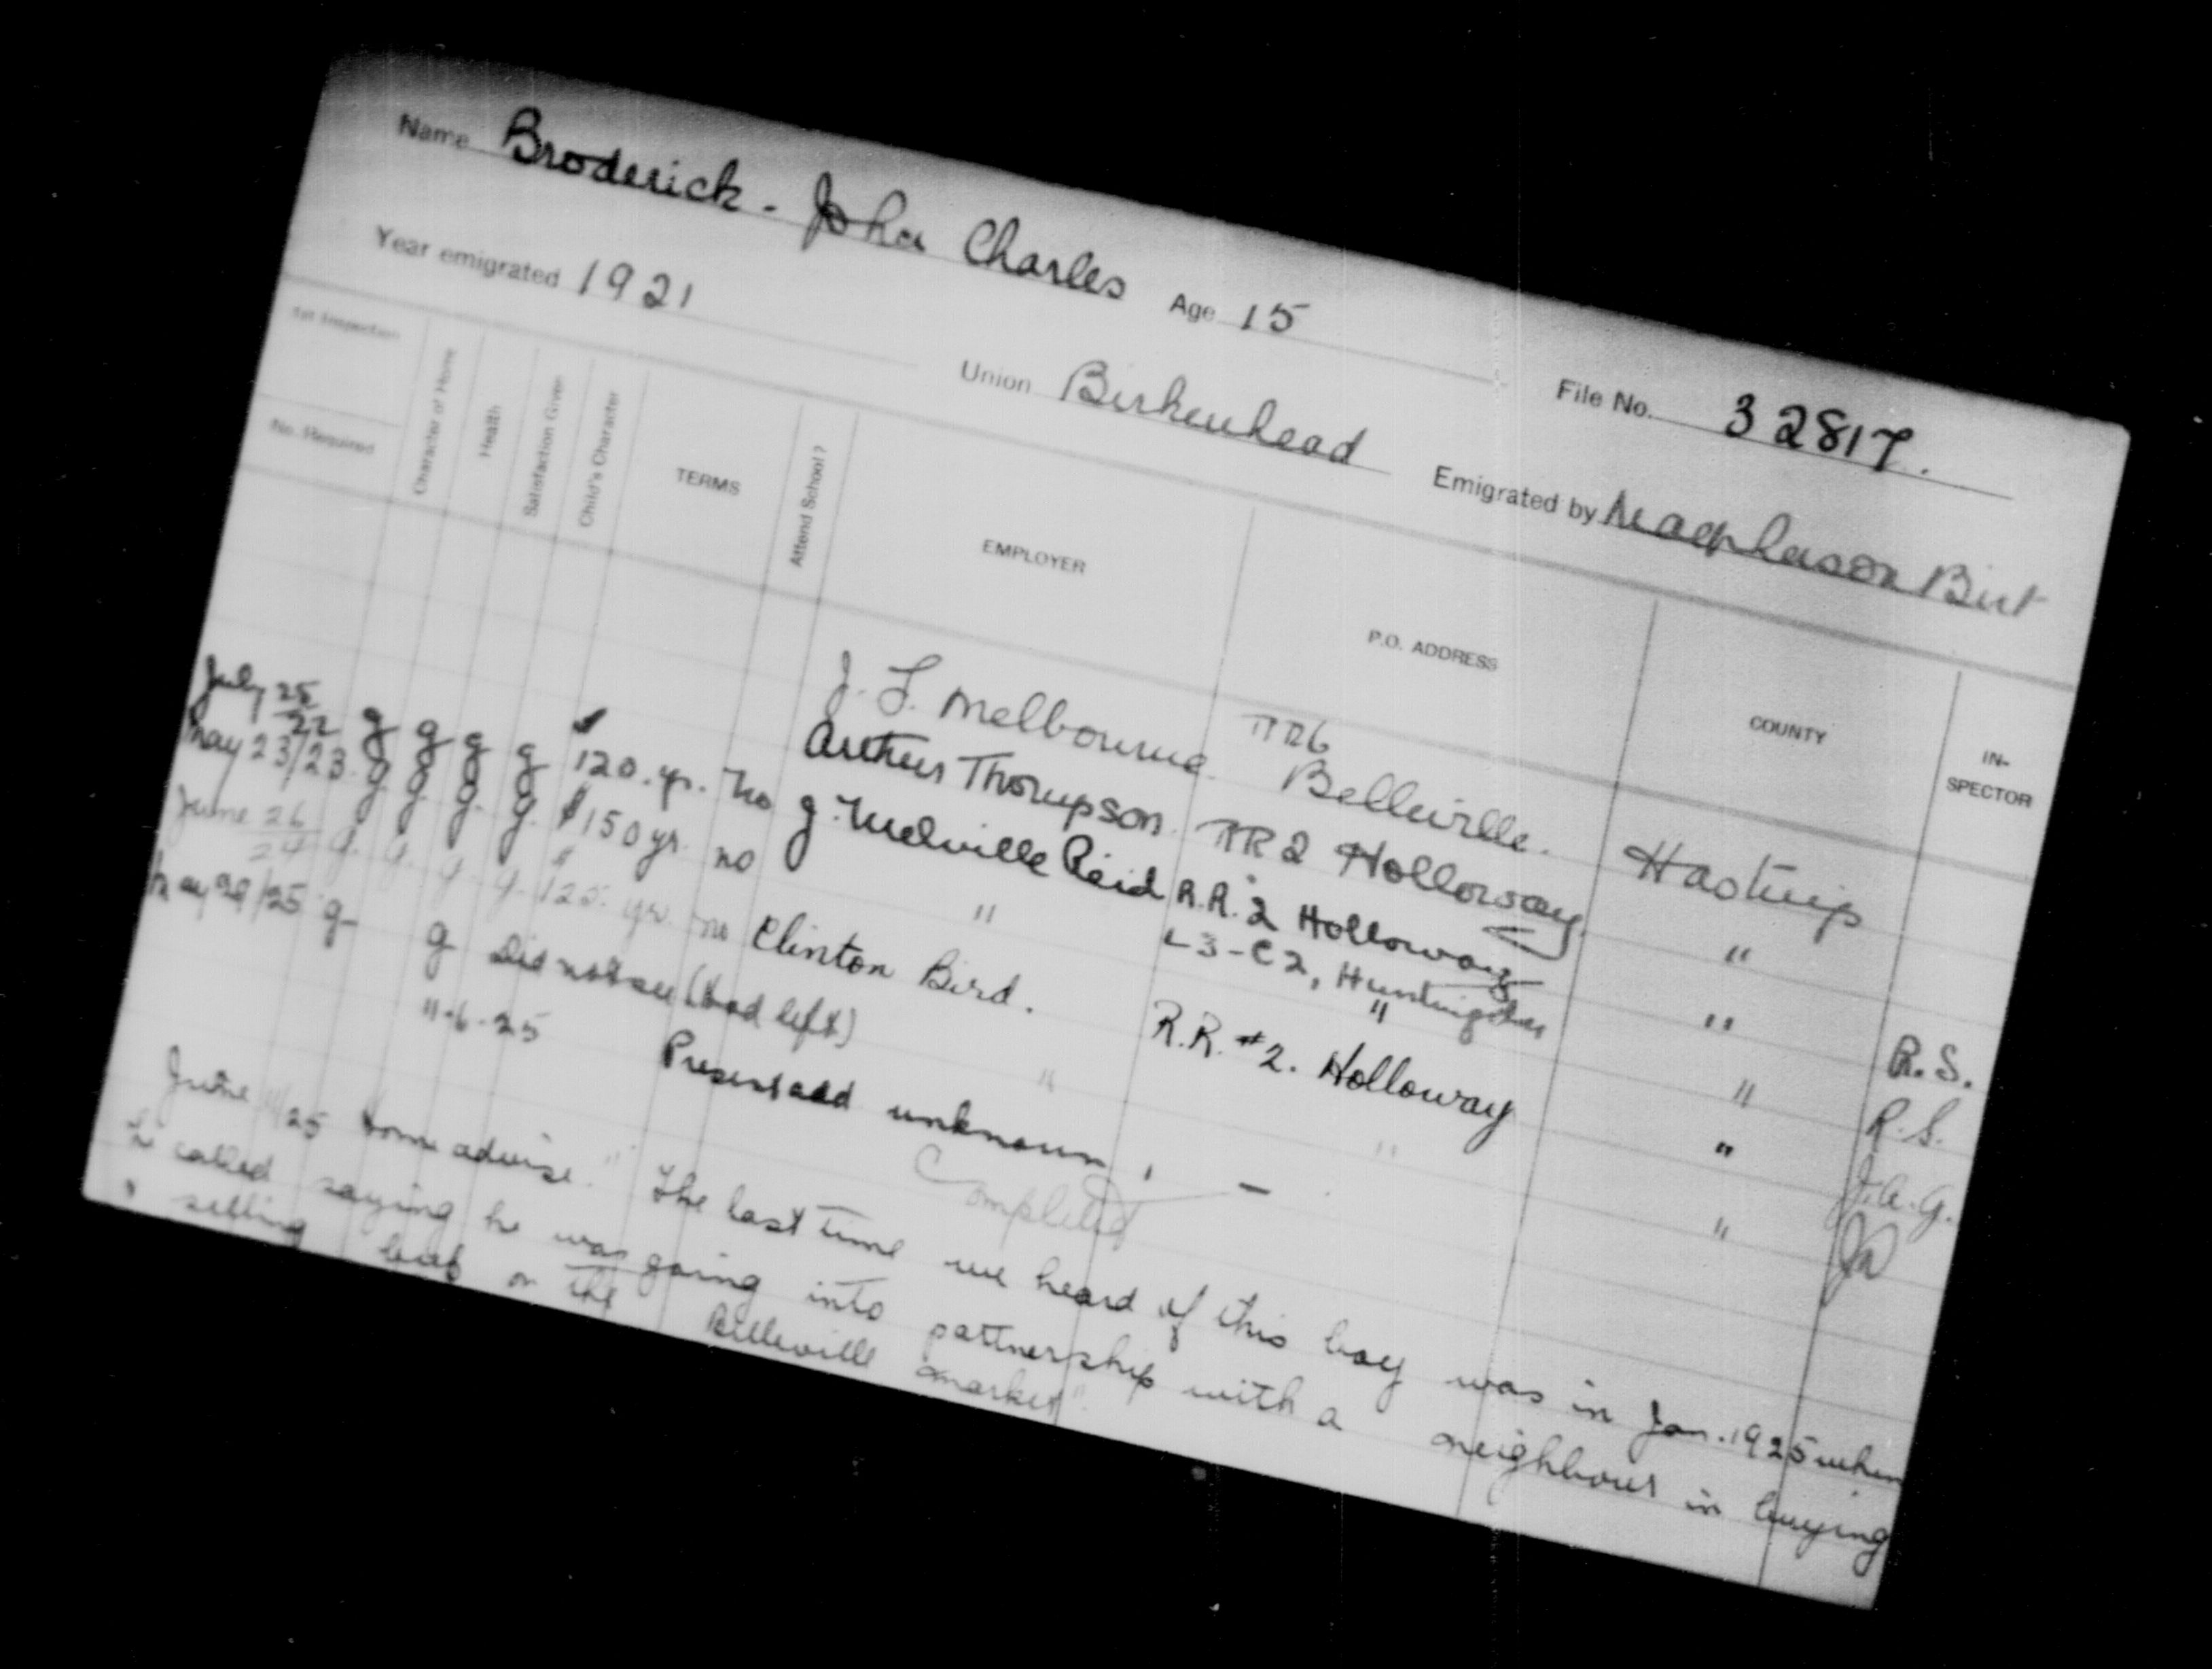 Name Broderick - John Charles Age 15 File No. 32817.
Year emigrated 1921 Union Birkenhead Emigrated by Macpherson Birt
1st Inspection
No. Required
Character of Home
Health
Satisfaction Given
Child's Character
TERMS
Attend School?
EMPLOYER
P.O. ADDRESS
COUNTY
IN-SPECTOR
J. F. Melbourne RR6 Belleville. Hastings
Arthur Thompson. RR 2 Holloway "
July 25/22 g g g g $120. yr. no G. Melville Reid R.R. 2 Holloway " R.S.
May 23/23 g. g. g. g. $150 yr. no " L3-C2, Huntingdon " R.S.
June 26/24 g. g. g. g. $125. yr. no Clinton Bird. " " J.A.G.
May 29/25 g g Did not see (had left) " R.R. #2. Holloway "
11-6-25 Present add unknown, -
Completed
June 11/25 Home advise "The last time we heard of this boy was in Jan. 1925 when
he called saying he was going into partnership with a neighbour in buying
selling beef on the Belleville market".